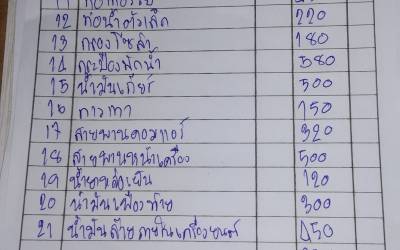 12 ท่อน้ำตัวเล็ก 220
13 กรองโซล่า 180
14 กระป๋องพักน้ำ 580
15 น้ำมันเกียร์ 500
16 กาวทา 150
17 สายพานคอมแอร์ 320
18 สายพานหน้าเครื่อง 500
19 น้ำยาหล่อเย็น 120
20 น้ำมันเฟืองท้าย 300
21 น้ำมันล้างภายในเครื่องยนต์ 150